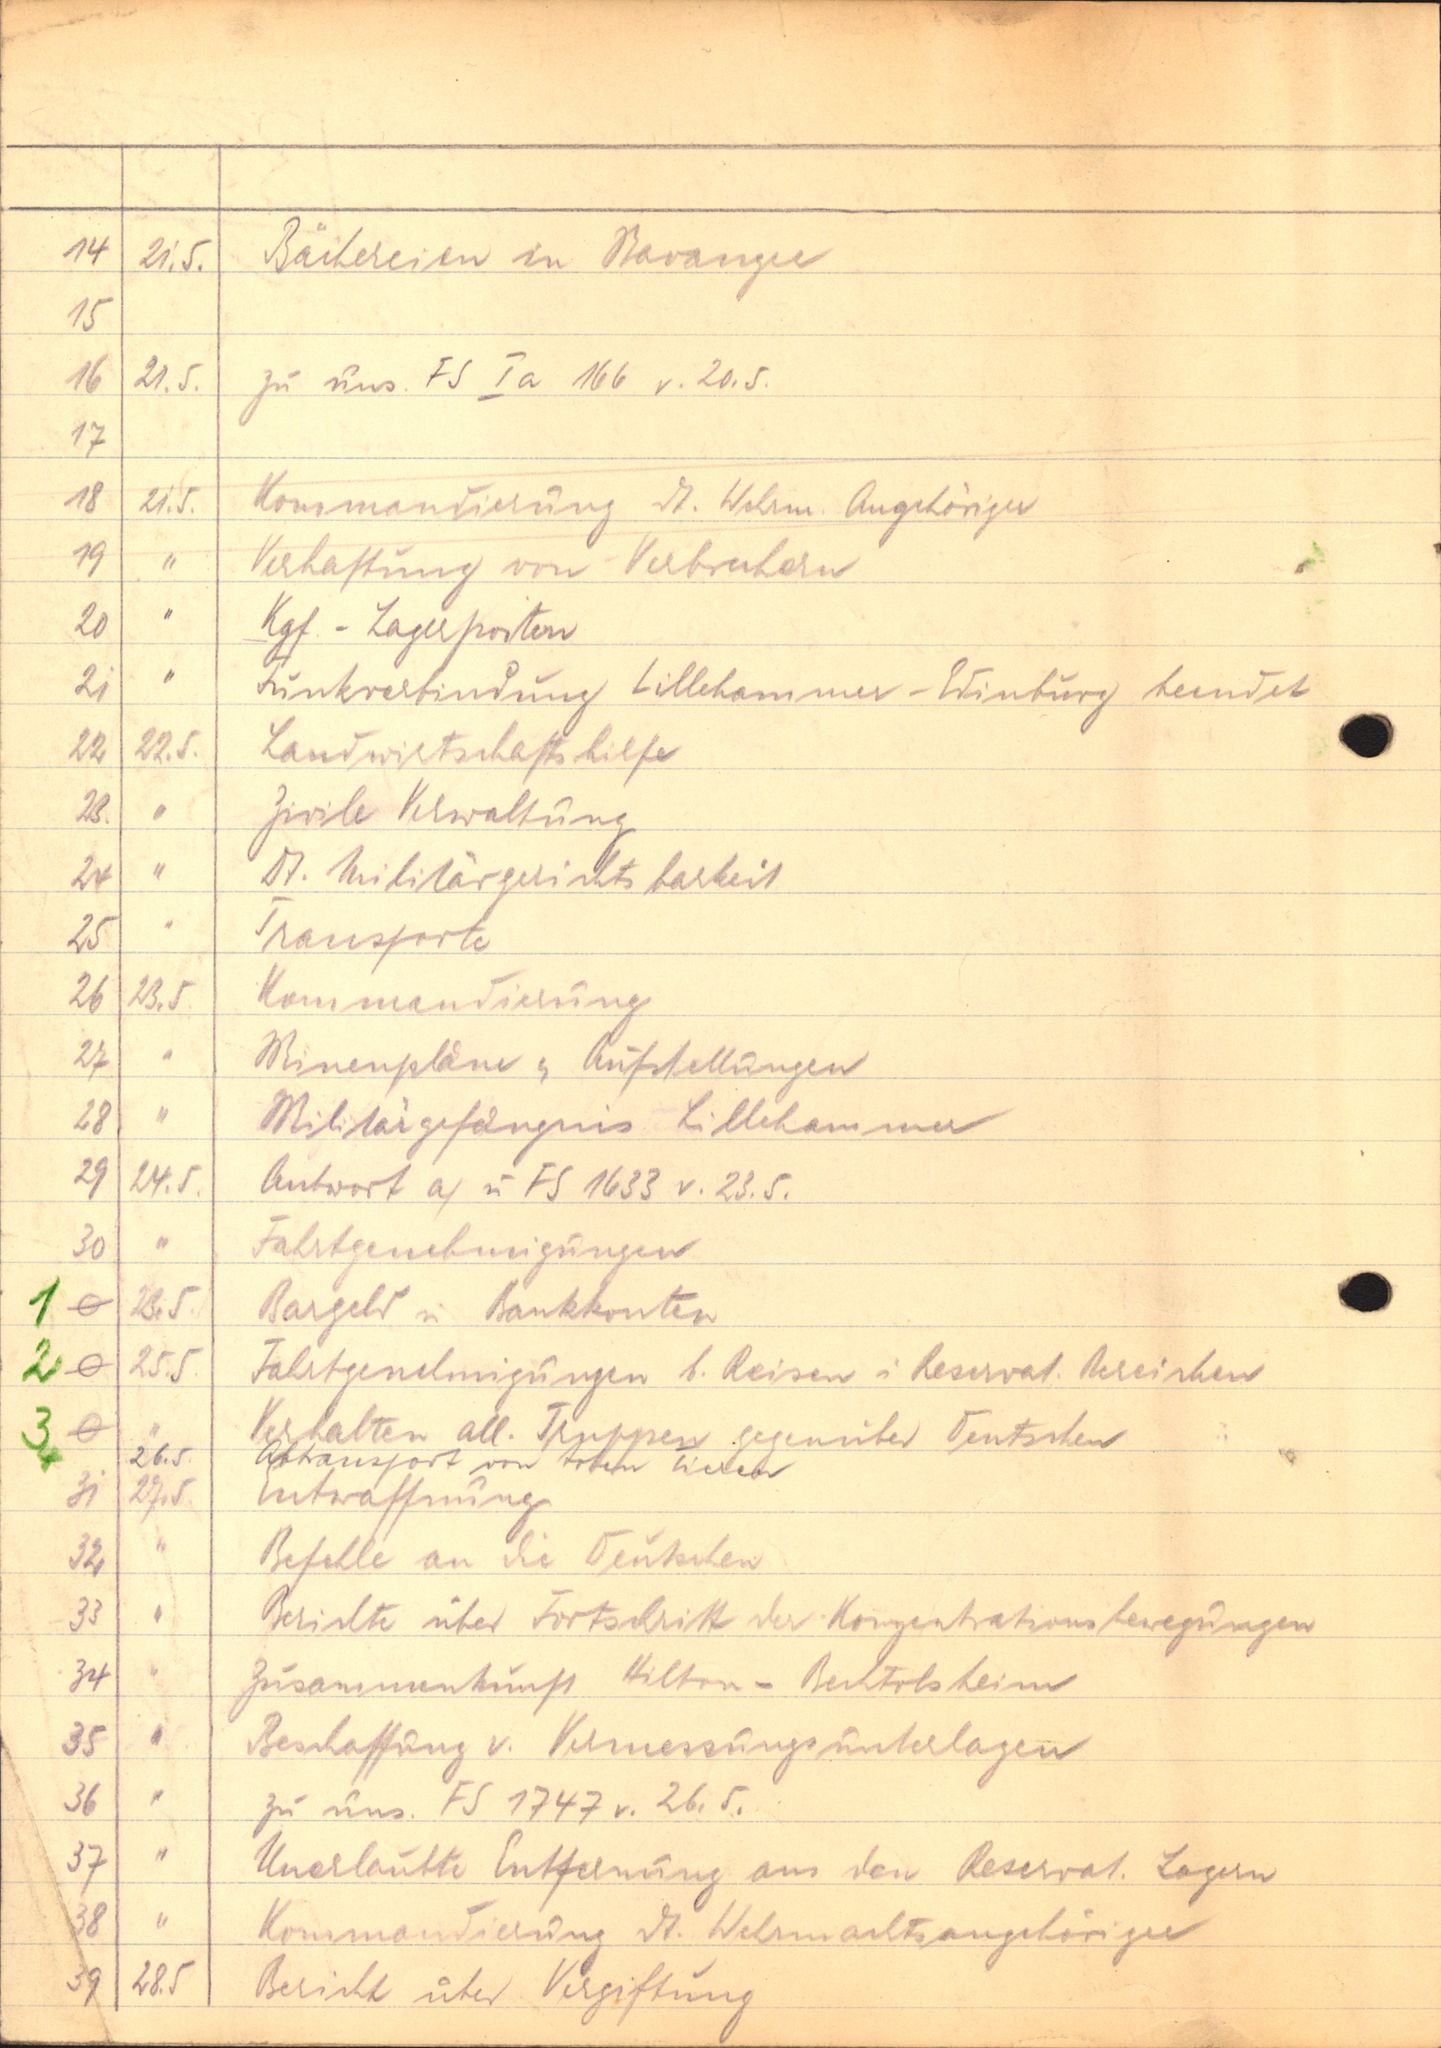 14 21.5. Bäckereien in Stavanger
15
16 21.5. zu uns. FS Ia 166 v. 20.5.
17
18 21.5. Kommandierung dt. Wehrm. Angehöriger
19 " Verhaftung von Verbrechern
20 " Kgf. - Lagerposten
21 " Funkverbindung Lillehammer - Edinburg beendet
22 22.5. Landwirtschaftshilfe
23. " Zivile Verwaltung
24 " Dt. Militärgerichtsbarkeit
25 " Transporte
26 23.5. Kommandierung
27 " Minenpläne u. Aufstellungen
28 " Militärgefängnis Lillehammer
29 24.5. Antwort a/ u FS 1633 v. 23.5.
30 " Fahrtgenehmigungen
1 Bargeld u Bankkonten
2 25.5. Fahrtgenehmigungen b. Reisen i Reservat. Bereichen
3 " Verhalten all. Truppen gegenüber Deutschen
4 26.5. Abtransport von toten Tieren
31 27.5. Entwaffnung
32 " Befehle an die Deutschen
33 " Berichte über Fortschritt der Konzentrationsbewegungen
34 " Zusammenkunft Hilton - Bechtolsheim
35 " Beschaffung v. Vermessungsunterlagen
36 " zu uns. FS 1747 v. 26.5.
37 " Unerlaubte Entfernung aus den Reservat. Lagern
38 " Kommandierung dt. Wehrmachtsangehöriger
39 28.5 Bericht über Vergiftung